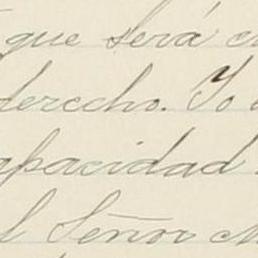 que será
derecho. Yo
capacidad
el Señor